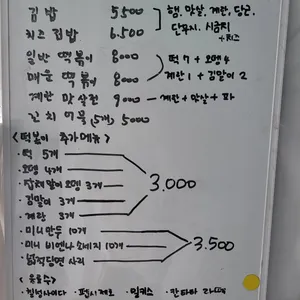 김밥 5500 햄, 맛살, 계란, 당근,
단무지, 시금치
치즈 김밥 6.500 +치즈
일반 떡볶이 8000 떡 7 + 오뎅 4
매운 떡볶이 8000 계란 1 + 김말이 2
계란 맛살전 9000 계란 + 맛살 + 파
김치 7쪽 (5개) 5000
<떡볶이 추가메뉴>
· 떡 5개
· 오뎅 4개
· 잡채말이오뎅 3개 3.000
· 김말이 3개
· 계란 3개
· 미니만두 10개
· 미니 비엔나 소세지 10개 3.500
· 넙적당면 사리
<음료수>
· 칠성사이다 · 펩시제로 · 밀키스 · 칸타타 라떼